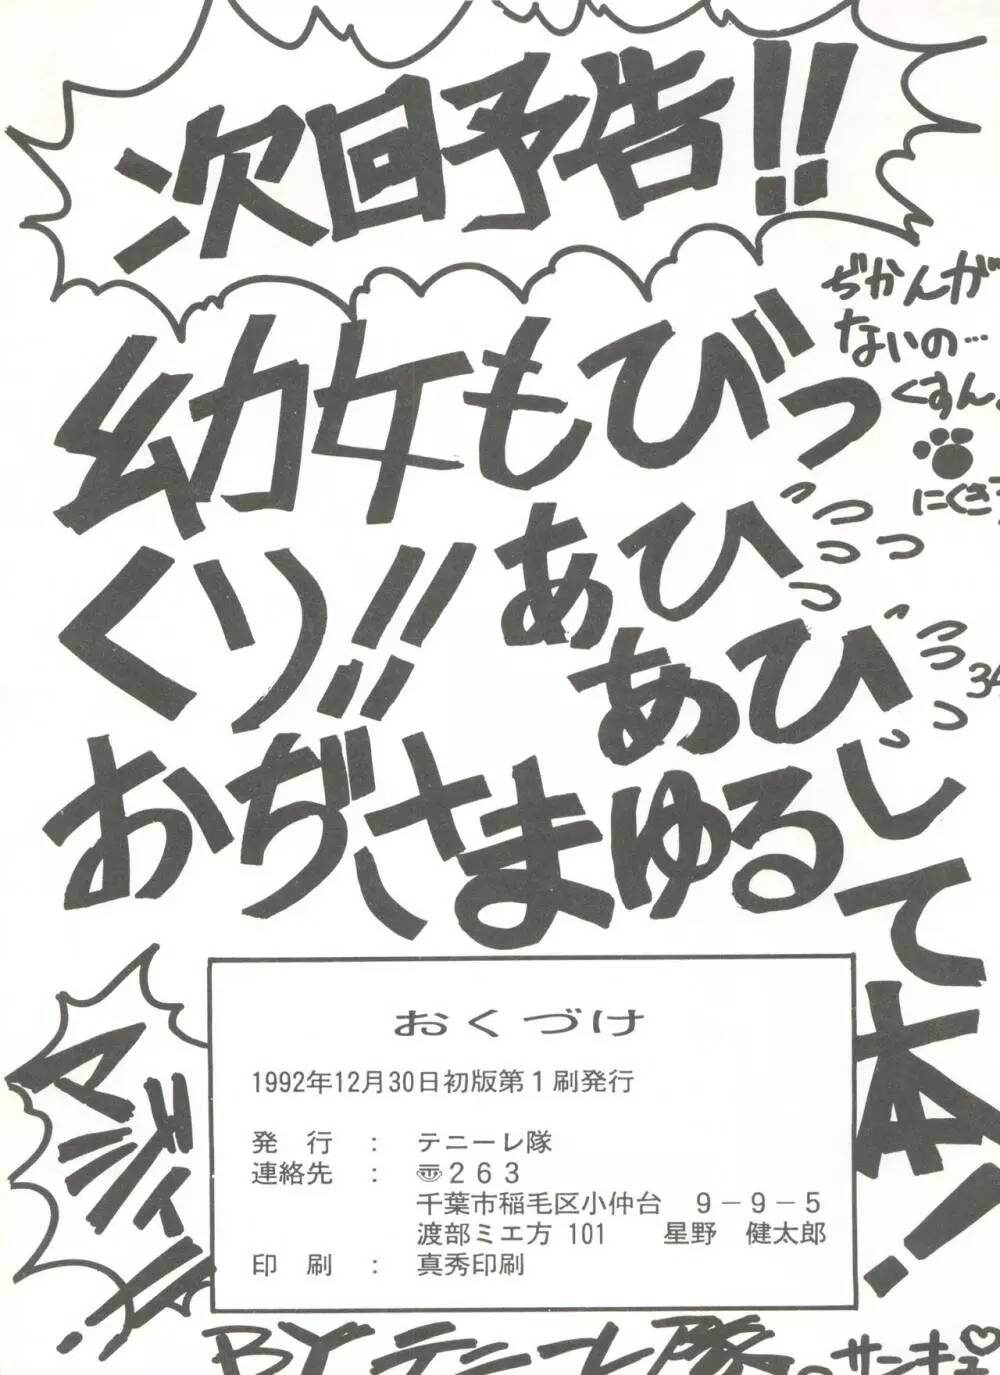 次回予告!!
ぢかんが
ないの…
くすん。
幼女もびっ
くり!!
あひ
あひ
おぢさまゆるして本!
おくづけ
1992年12月30日初版第1刷発行
発 行 : テニーレ隊
連絡先 : 〠263
千葉市稲毛区小仲台 9-9-5
渡部ミエ方 101 星野 健太郎
印 刷 : 真秀印刷
BY テニーレ隊
サンキュ